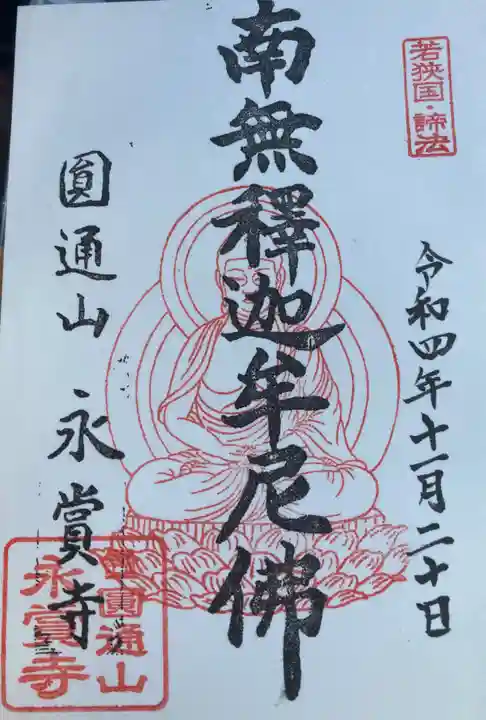 若狭国・諦法
令和四年十一月二十日
南無釋迦牟尼佛
圓通山 永賞寺
圓通山
永賞寺